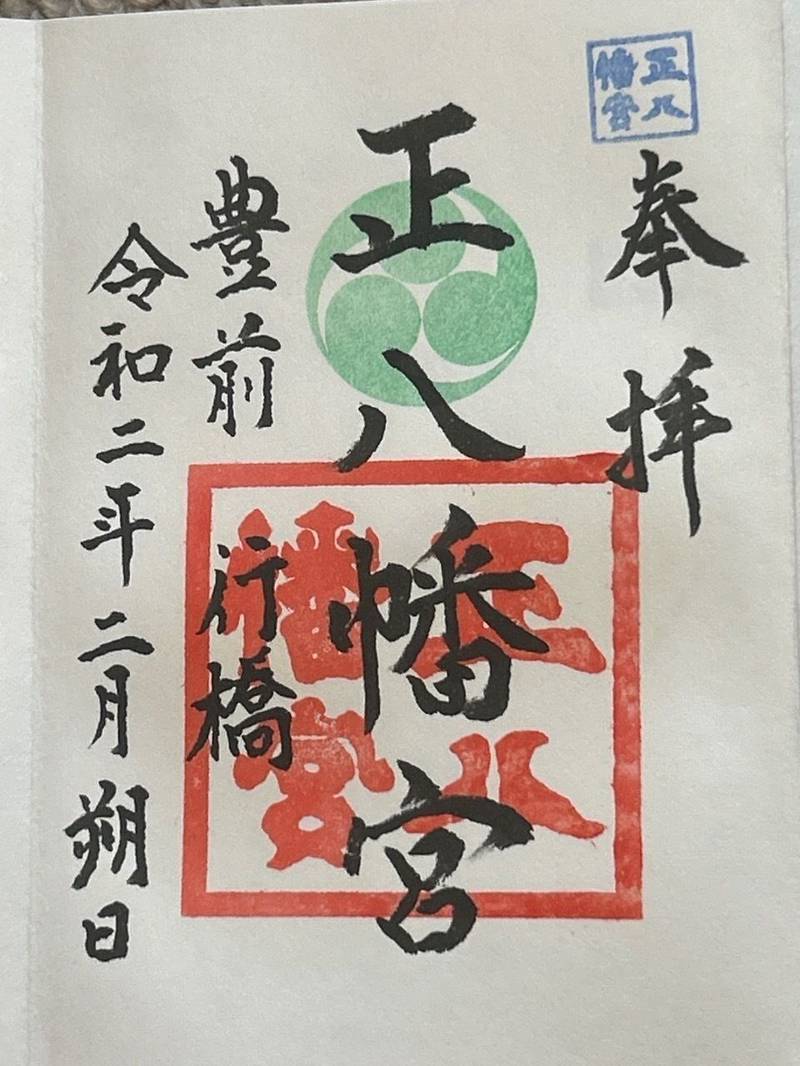 正八
幡宮
奉拝
正八幡宮
正八
幡宮
豊前 行橋
令和二年二月朔日